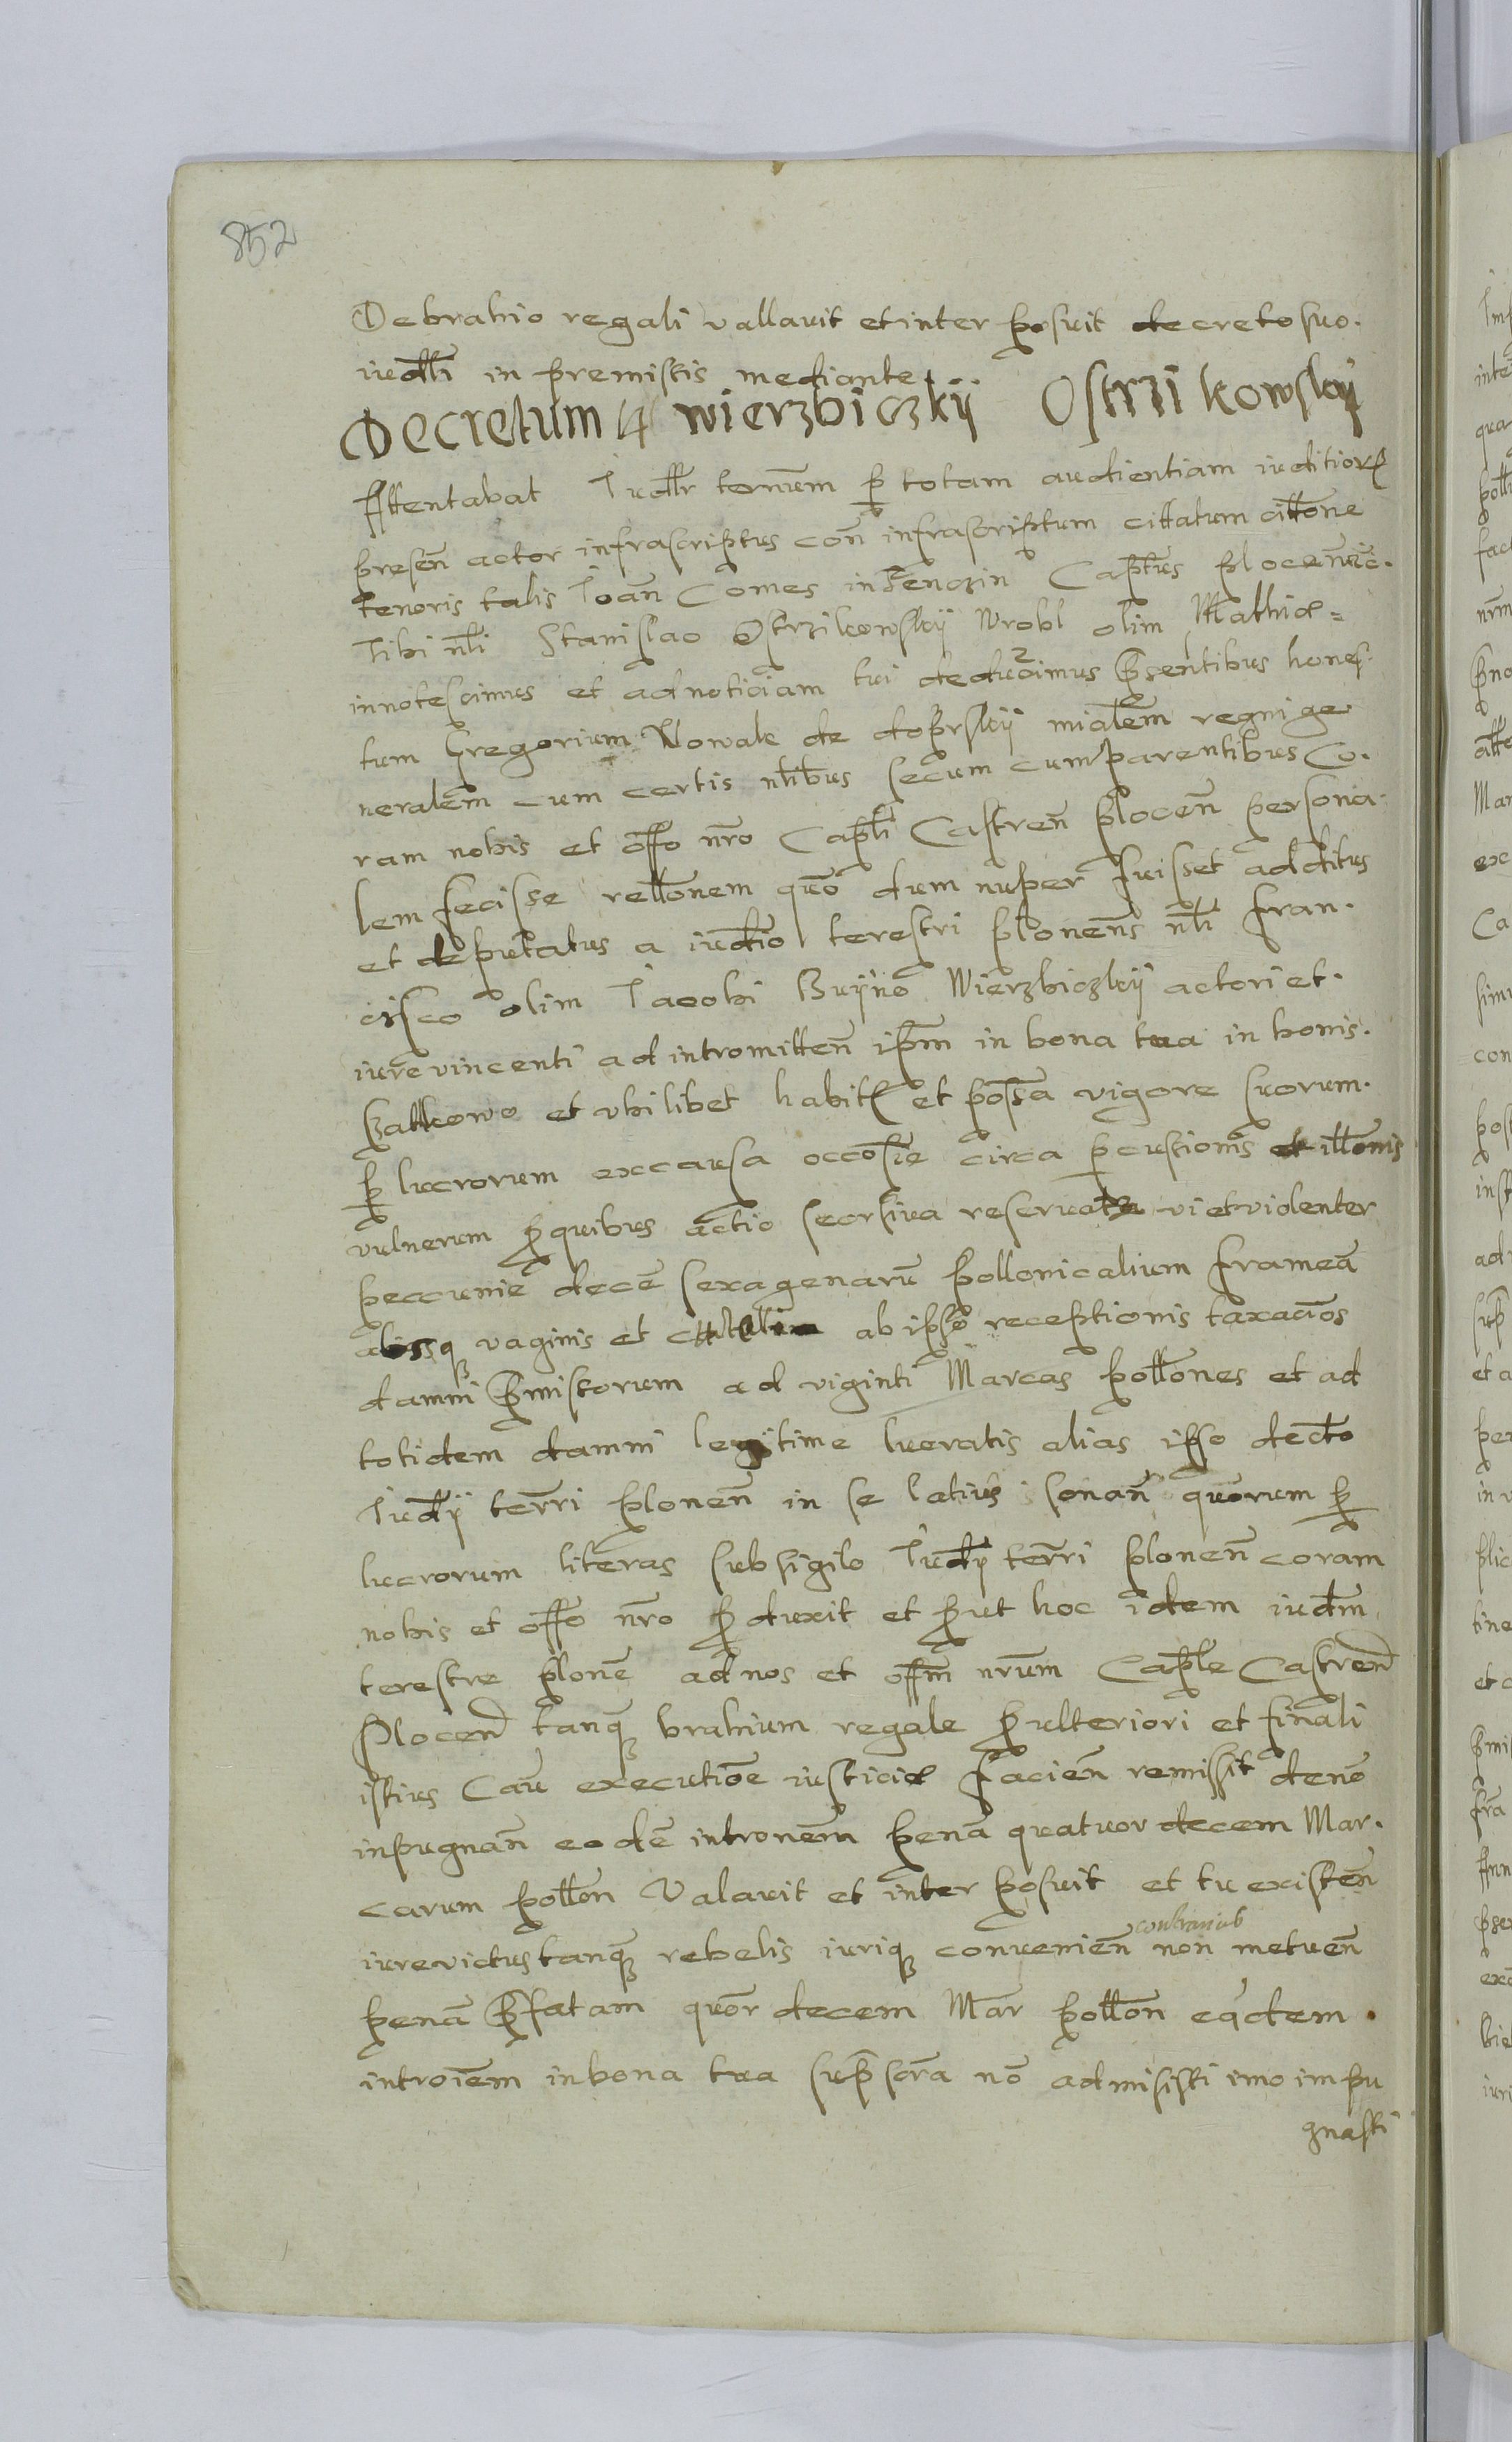 852
De brahio regali vallauit et inter posuit decreto suo.
iudlli in premissis mediante.
Decretum 4 wierzbiczkÿ Ostrzikowskÿ
Attentabat Iudllr termum p totam audientiam iuditior
presen actor infrascriptus con infrascriptum cittatum cittone
tenoris talis Ioan Comes Captus plocen
Tibi nli Stanislao Ostrzikowskÿ Wrobl olim Mathiæ
innotescimus et ad noticiam tui deducimus psentibus hones
tum Gregorium Nowak de dobrskÿ mialem regni ge
neralem cum certis nlibus secum cumparentibus Co.
ram nobis et offo nro Capli Castren plocen persona
lem fecisse rellonem quo dum nuper fuisset additus
et deputatus a iudio terestri plonens nli Fran.
cisco olim Iacobi Buÿno Wierzbiczkÿ actori et.
iure vincenti ad intromitten ipm in bona tua in bonis.
et vbilibet habit et possa vigore suorum.
p lucrorum ex causa occosie circa pcussionis et illonis
vulnerum p quibus actio seorsiua reseruata vi et violenter
peccunie dece sexagenaru pollonicalium frameā
vaginis et ab ipso receptionis taxacios
damni pmissorum ad viginti Marcas pollones et ad
totidem damni legitime lucratis alias ipso decto
Iudÿ terri plonen in se latius sonan quorum p
lucrorum literas sub sigilo Iudÿ terri plonen coram
nobis et offo nro p duxit et put hoc idem iudm
terestre plone ad nos et offm nrum Caple Castren
Plocen tanq brahium regale p ulteriori et finali
istius Cau executioe iusticiæ facien remissit deno
inpugnan eode intronem pena quatuor decem Mar.
carum pollon Valauit et inter posuit et tu existen
iure victus tanq rebelis iuriq conuenien contraius non metuen
pena pfatam quor decem Mar pollon eqdem.
introiem in bona tua supscra no admisisti imo impu
gnasti